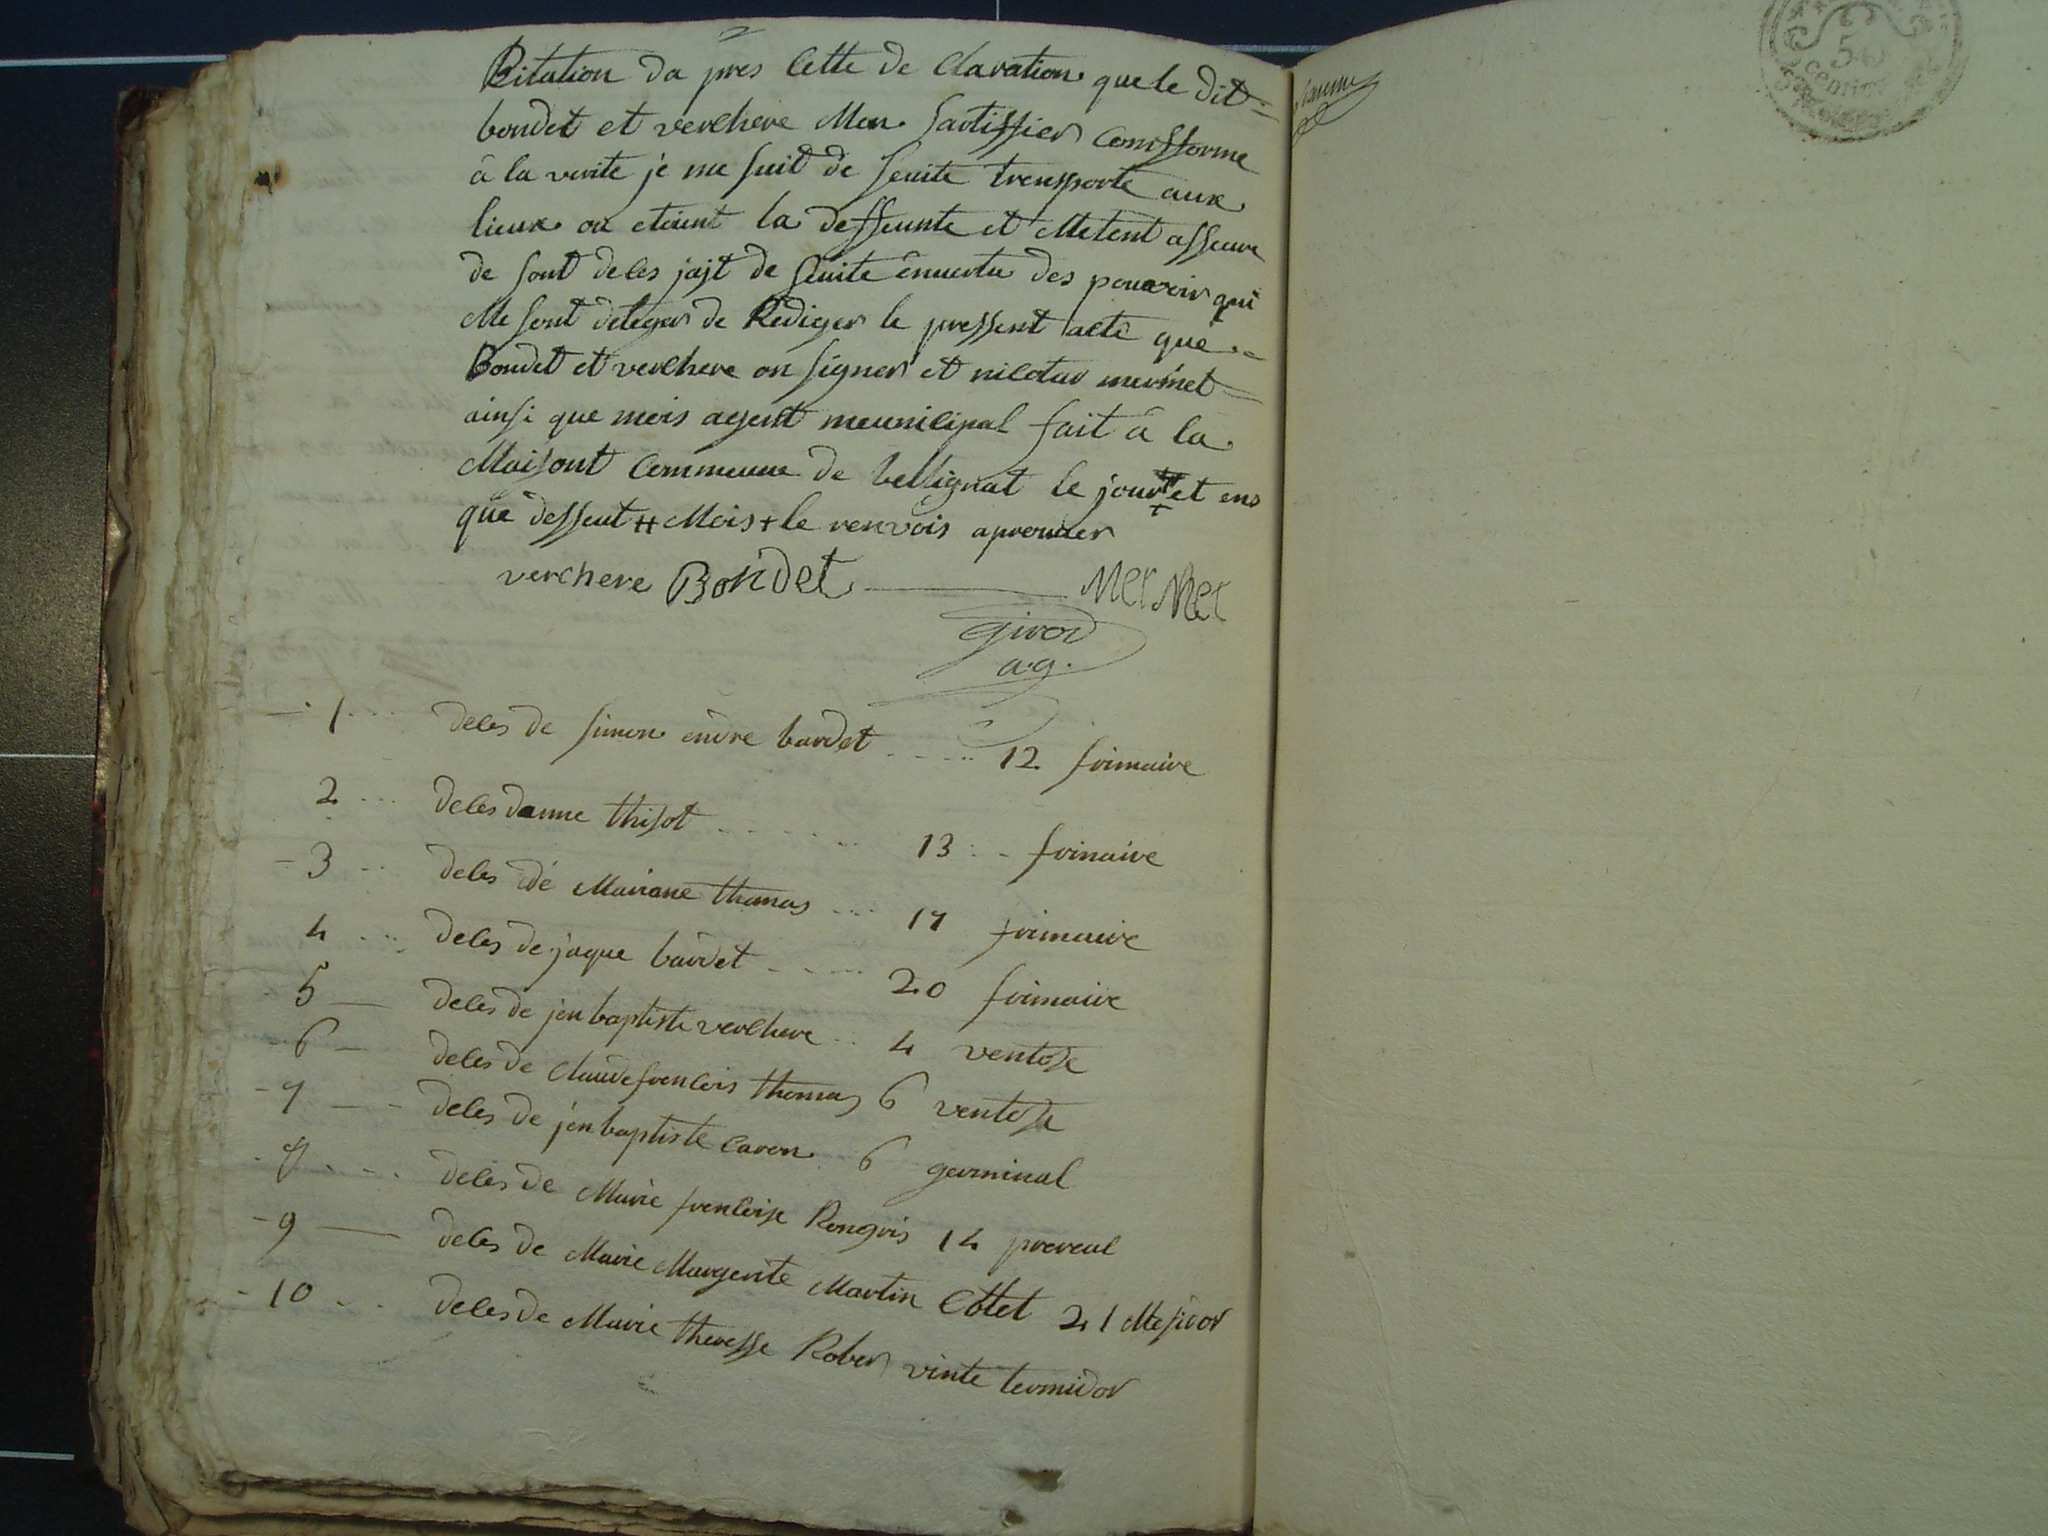 Bitation da pres Cette de Claration que le dit
bondet et verchere Mon Sartissier Comfforme
a la verite je me suit de seuite transporte aux
lieux ou etoient la deffeunte et Metent asseure
de sont deces jajt de seuite enuertu des pouvoir qui
Me sont deleger de Rediger le pressent acte que
Bondet et verchere on signer et nicolas mermet
ainsi que mois agent meunicipal fait a la
Maisont Commeune de bellignat le jour ++ et ens
que desseut ++ Mois + le renvois aprouuer
verchere Bondet Mermet
girod
a.g.
1 deces de simon endre bardet 12 frimaire
2 deces danne thisot 13 frimaire
3 deces de Mariane thomas 17 frimaire
4 deces de jaque bardet 20 frimaire
5 deces de jen baptiste verchere 4 ventose
6 deces de Claude frencois thomas 6 ventose
7 deces de jen baptiste Caron 6 germinal
8 deces de Marie frencoise Rongris 14 prereal
9 deces de Marie Margerite Martin Cottet 21 Mesidor
10 deces de Marie theresse Rober vinte termidor
50
centimes